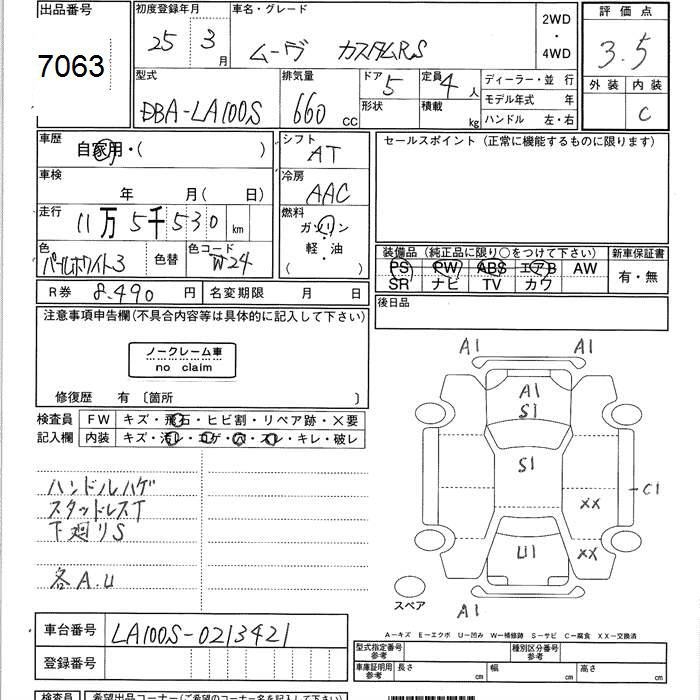 出品番号
7063
初度登録年月
25 年 3 月
車名・グレード
ムーヴ カスタムRS
2WD
・
4WD
評価点
3.5
外装 内装
C
型式
DBA-LA100S
排気量
660 cc
ドア
5
形状
定員
4 人
積載
kg
ディーラー・並行
モデル年式 年
ハンドル 左・右
車歴
自家用・( )
車検
年 月( 日)
走行
11万5千530 km
色
パールホワイト3
色替
色コード
W24
シフト
AT
冷房
AAC
燃料
ガソリン
軽・油
( )
セールスポイント (正常に機能するものに限ります)
装備品 (純正品に限り○をつけて下さい)
PS PW ABS エアB AW
SR ナビ TV カワ
新車保証書
有・無
後日品
R券 8,490 円
名変期限 月 日
注意事項申告欄(不具合内容等は具体的に記入して下さい)
ノークレーム車
no claim
修復歴 有 〔箇所 〕
検査員
記入欄
FW キズ・飛石・ヒビ割・リペア跡・×要
内装 キズ・汚レ・コゲ・穴・スレ・キレ・破レ
ハンドルハゲ
スタッドレスT
下廻りS
各A.U
A1 A1
A1
S1
S1
C1
XX
U1 XX
スペア
A1
A−キズ E−エクボ U−凹み W−補修跡 S−サビ C−腐食 XX−交換済
車台番号
LA100S-0213421
登録番号
型式指定番号
参考
種別区分番号
参考
車庫証明用
参考
長さ cm 幅 cm 高さ cm
検査員
希望出品コーナー(ご希望のコーナー名を記入して下さい)